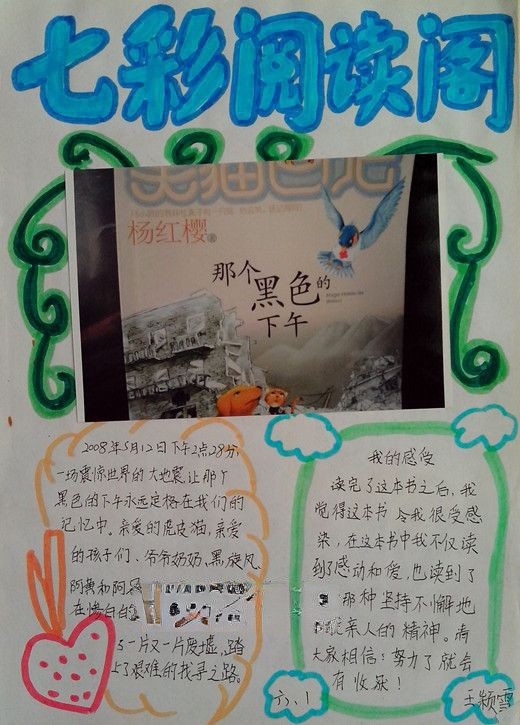 七彩阅读阁
笑猫日记
杨红樱
那个
黑色的
下午
2008年5月12日下午2点28分,
一场震惊世界的大地震,让那个
黑色的下午永远定格在我们的
记忆中。亲爱的虎皮猫,亲爱
的孩子们、爷爷奶奶,黑旋风、
阿黄和阿
在惨白的
一片又一片废墟,踏
上了艰难的找寻之路。
我的感受
读完了这本书之后,我
觉得这本书 令我很受感
染,在这本书中我不仅读
到了感动和爱,也读到了
那种坚持不懈地
亲人的精神。请
大家相信:努力了就会
有收获!
六、1
王颖雪